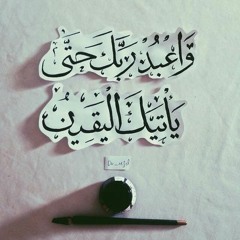 وَاعْبُدْ رَبَّكَ حَتَّى
يَاتِيَكَ الْيَقِينُ